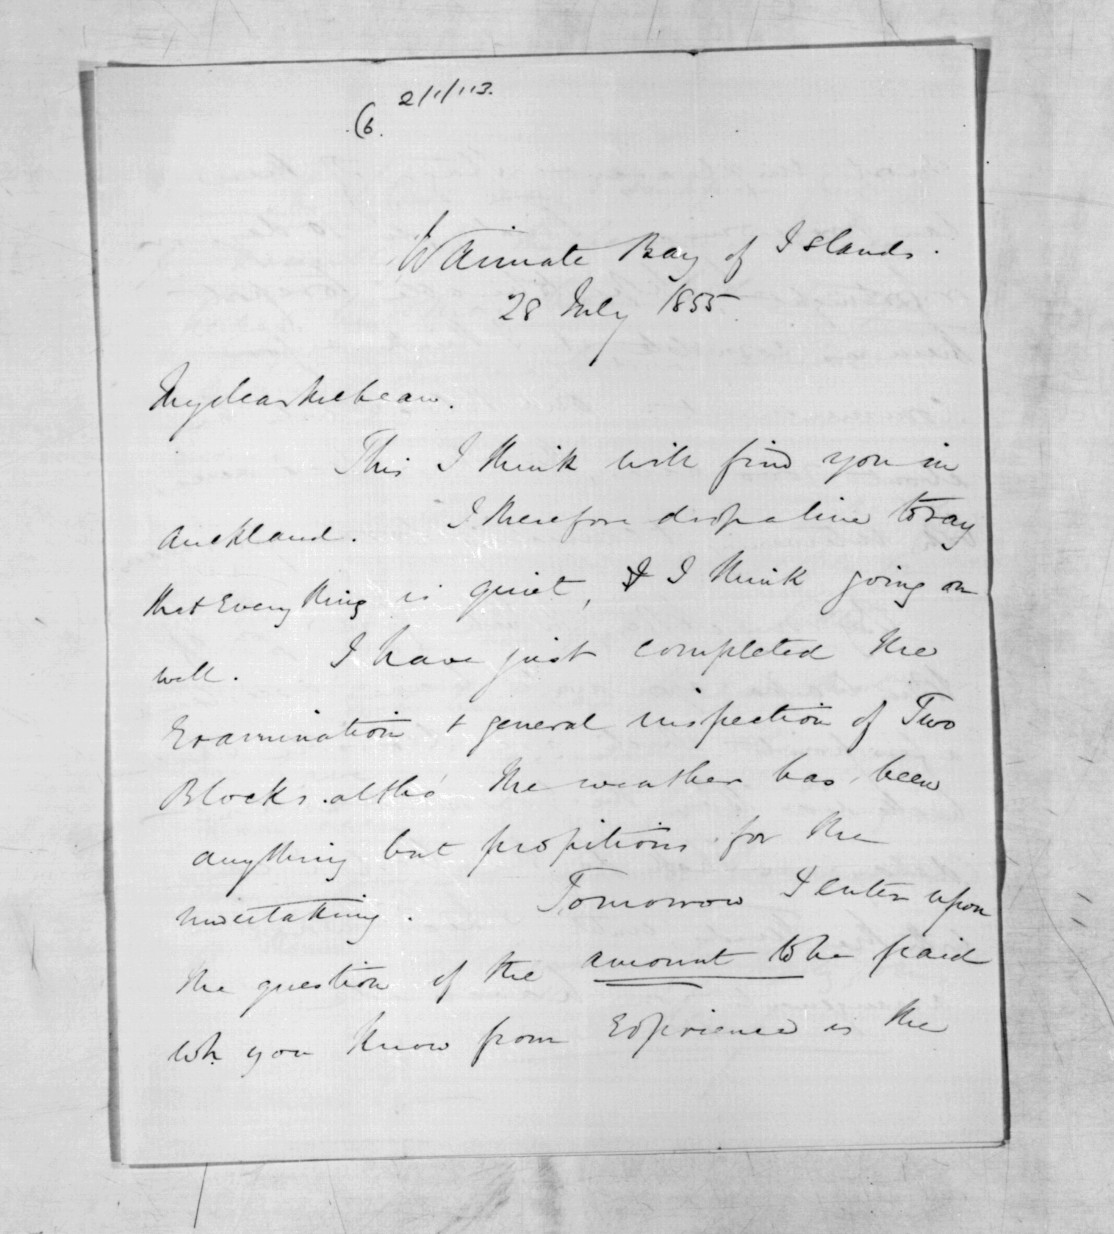 2/1/113.
(6.
Waimate Bay of Islands.
28 July 1855
My dear McLean.
This I think will find you in
Auckland. I therefore drop a line to say
that Everything is quiet, & I think going on
well. I have just completed the
Examination & general inspection of Two
Blocks. altho' the weather has been
anything but propitious for the
undertaking. Tomorrow I enter upon
the question of the amount to be paid
wh. you know from Experience is the